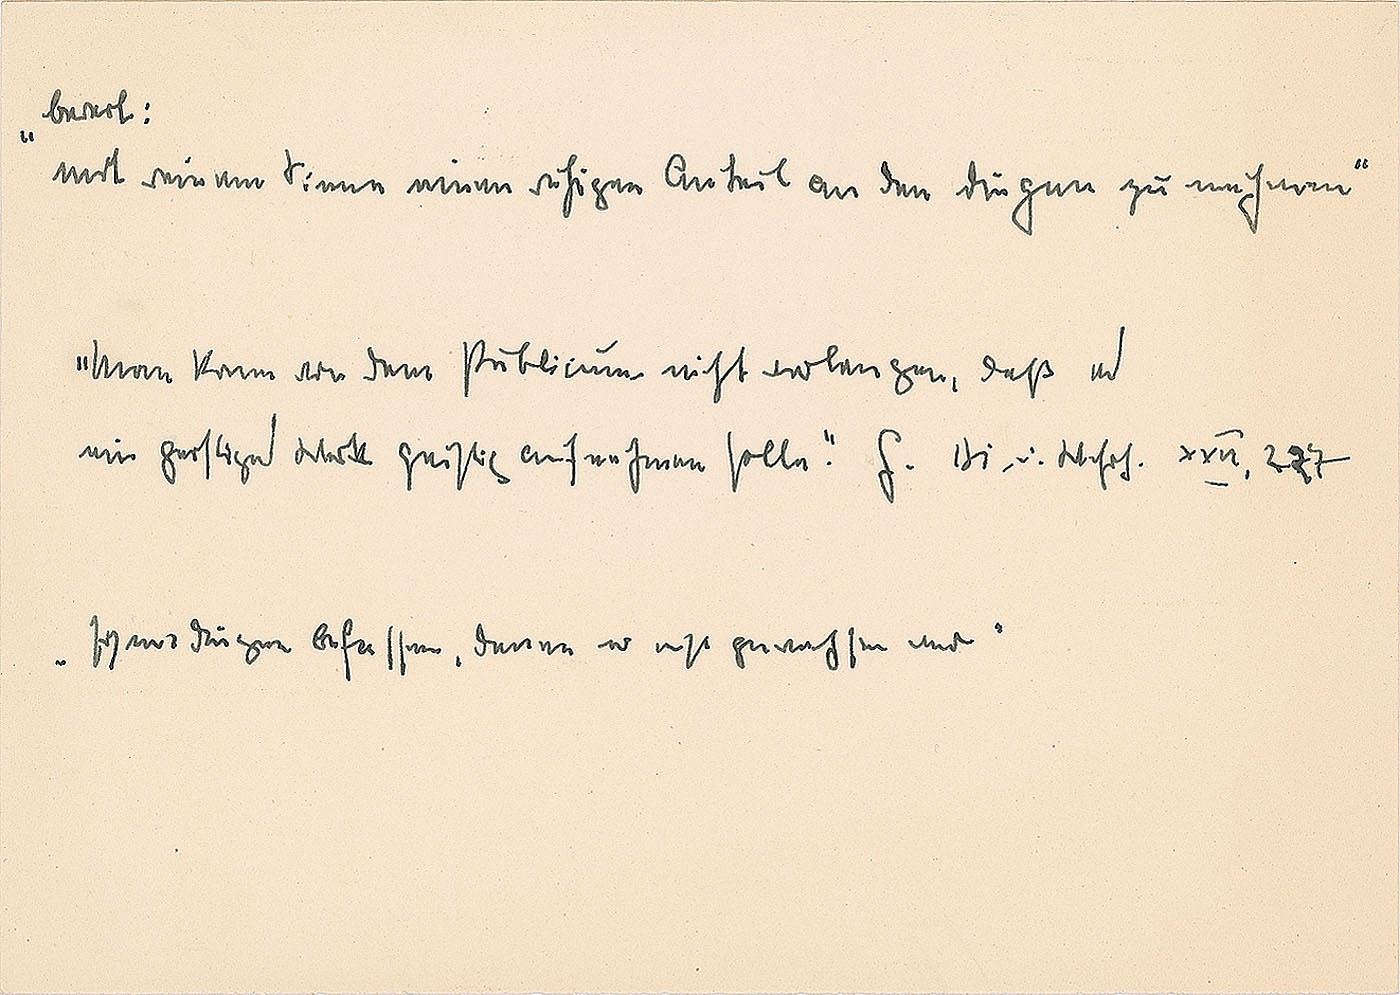 bereit:
„mit reinem Sinne einen ruhigen Anteil an den Dingen zu nehmen“
"Man kann von dem Publicum nicht verlangen, daß es
ein geistiges Werk geistig aufnehmen solle". G. Di. u. Wahrh. XXII, 277
„sich mit Dingen befassen, denen er nicht gewachsen"